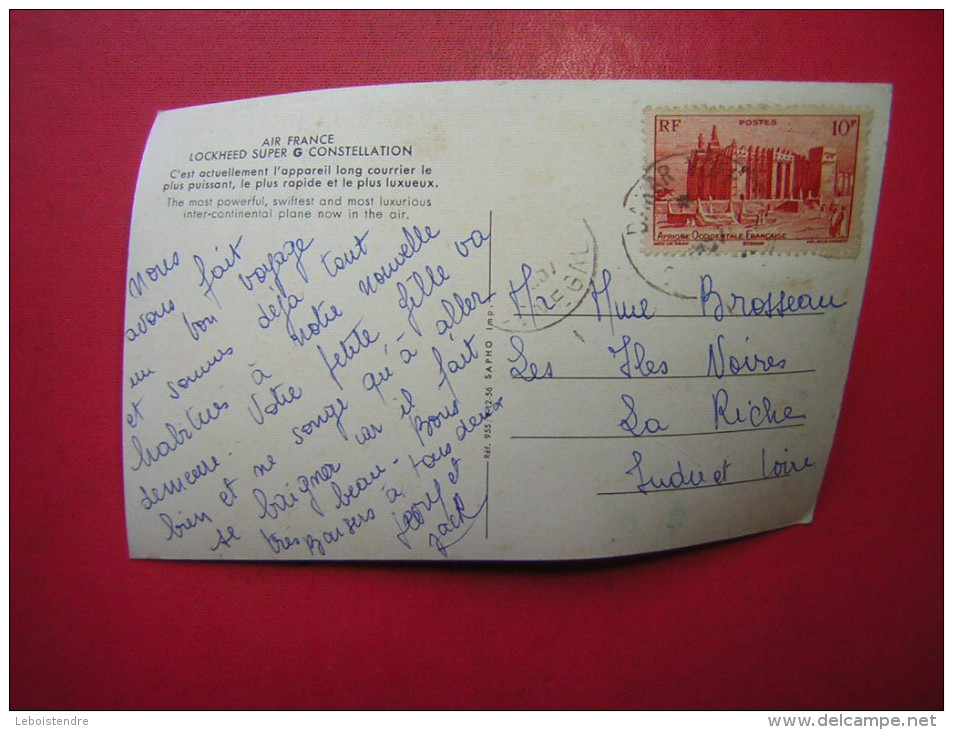 AIR FRANCE
LOCKHEED SUPER G CONSTELLATION
C'est actuellement l'appareil long courrier le
plus puissant, le plus rapide et le plus luxueux.
The most powerful, swiftest and most luxurious
inter-continental plane now in the air.
Nous
avons fait
un bon voyage
et sommes déjà tout
habitués à notre nouvelle
demeure. Votre petite fille va
bien et ne songe qu'à aller
se baigner car il fait
très beau - Bons
Baisers à tous deux
et
Jack
Réf. 955 12-56 SAPHO Imp.
RF POSTES 10F
AFRIQUE OCCIDENTALE FRANÇAISE
DAKAR
Mr Mme Brosseau
Les Iles Noires
La Riche
Indre et Loire
Leboistendre
http://www.delcampe.net